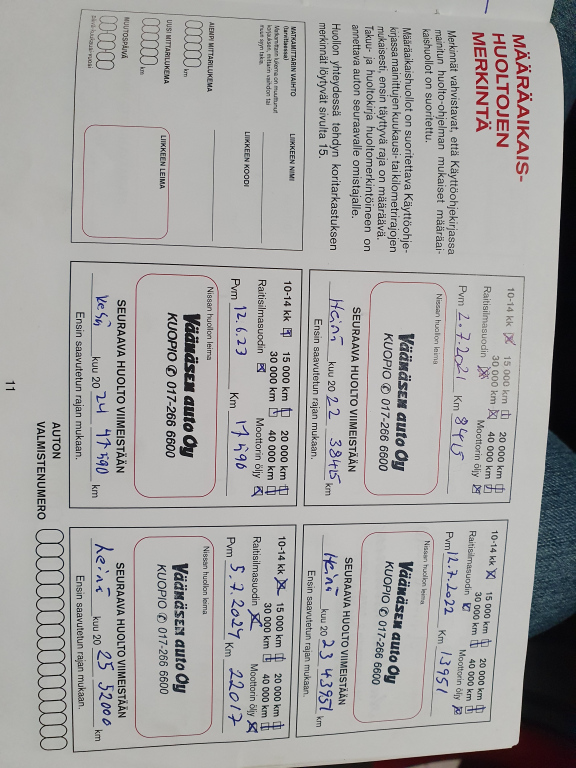 MÄÄRÄAIKAIS-
HUOLTOJEN
MERKINTÄ
Merkinnät vahvistavat, että Käyttöohjekirjassa
mainitun huolto-ohjelman mukaiset määräai-
kaishuollot on suoritettu.
Määräaikaishuollot on suoritettava Käyttöohje-
kirjassa mainittujen kuukausi- tai kilometrirajojen
mukaisesti, ensin täyttyvä raja on määräävä.
Takuu- ja huoltokirja huoltomerkintöineen on
annettava auton seuraavalle omistajalle.
Huollon yhteydessä tehdyn koritarkastuksen
merkinnät löytyvät sivulta 15.
MATKAMITTARIN VAIHTO
(tarvittaessa)
LIIKKEEN NIMI
AIEMPI MITTARILUKEMA
km
LIIKKEEN KOODI
UUSI MITTARILUKEMA
km
LIIKKEEN LEIMA
MUUTOSPÄIVÄ
10-14 kk 15 000 km 20 000 km
30 000 km 40 000 km
Raitisilmasuodin Moottorin öljy
Pvm 2.7.2021 Km 8415
Nissan huollon leima
Väänäsen auto Oy
KUOPIO ✆ 017-266 6600
SEURAAVA HUOLTO VIIMEISTÄÄN
Heinä kuu 20 22 38415 km
Ensin saavutetun rajan mukaan.
10-14 kk 15 000 km 20 000 km
30 000 km 40 000 km
Raitisilmasuodin Moottorin öljy
Pvm 12.7.2022 Km 13951
Nissan huollon leima
Väänäsen auto Oy
KUOPIO ✆ 017-266 6600
SEURAAVA HUOLTO VIIMEISTÄÄN
Heinä kuu 20 23 43951 km
Ensin saavutetun rajan mukaan.
10-14 kk 15 000 km 20 000 km
30 000 km 40 000 km
Raitisilmasuodin Moottorin öljy
Pvm 12.6.23 Km 17590
Nissan huollon leima
Väänäsen auto Oy
KUOPIO ✆ 017-266 6600
SEURAAVA HUOLTO VIIMEISTÄÄN
Kesä kuu 20 24 47590 km
Ensin saavutetun rajan mukaan.
10-14 kk 15 000 km 20 000 km
30 000 km 40 000 km
Raitisilmasuodin Moottorin öljy
Pvm 5.7.2024 Km 22017
Nissan huollon leima
Väänäsen auto Oy
KUOPIO ✆ 017-266 6600
SEURAAVA HUOLTO VIIMEISTÄÄN
heinä kuu 20 25 52000 km
Ensin saavutetun rajan mukaan.
AUTON
VALMISTENUMERO
11